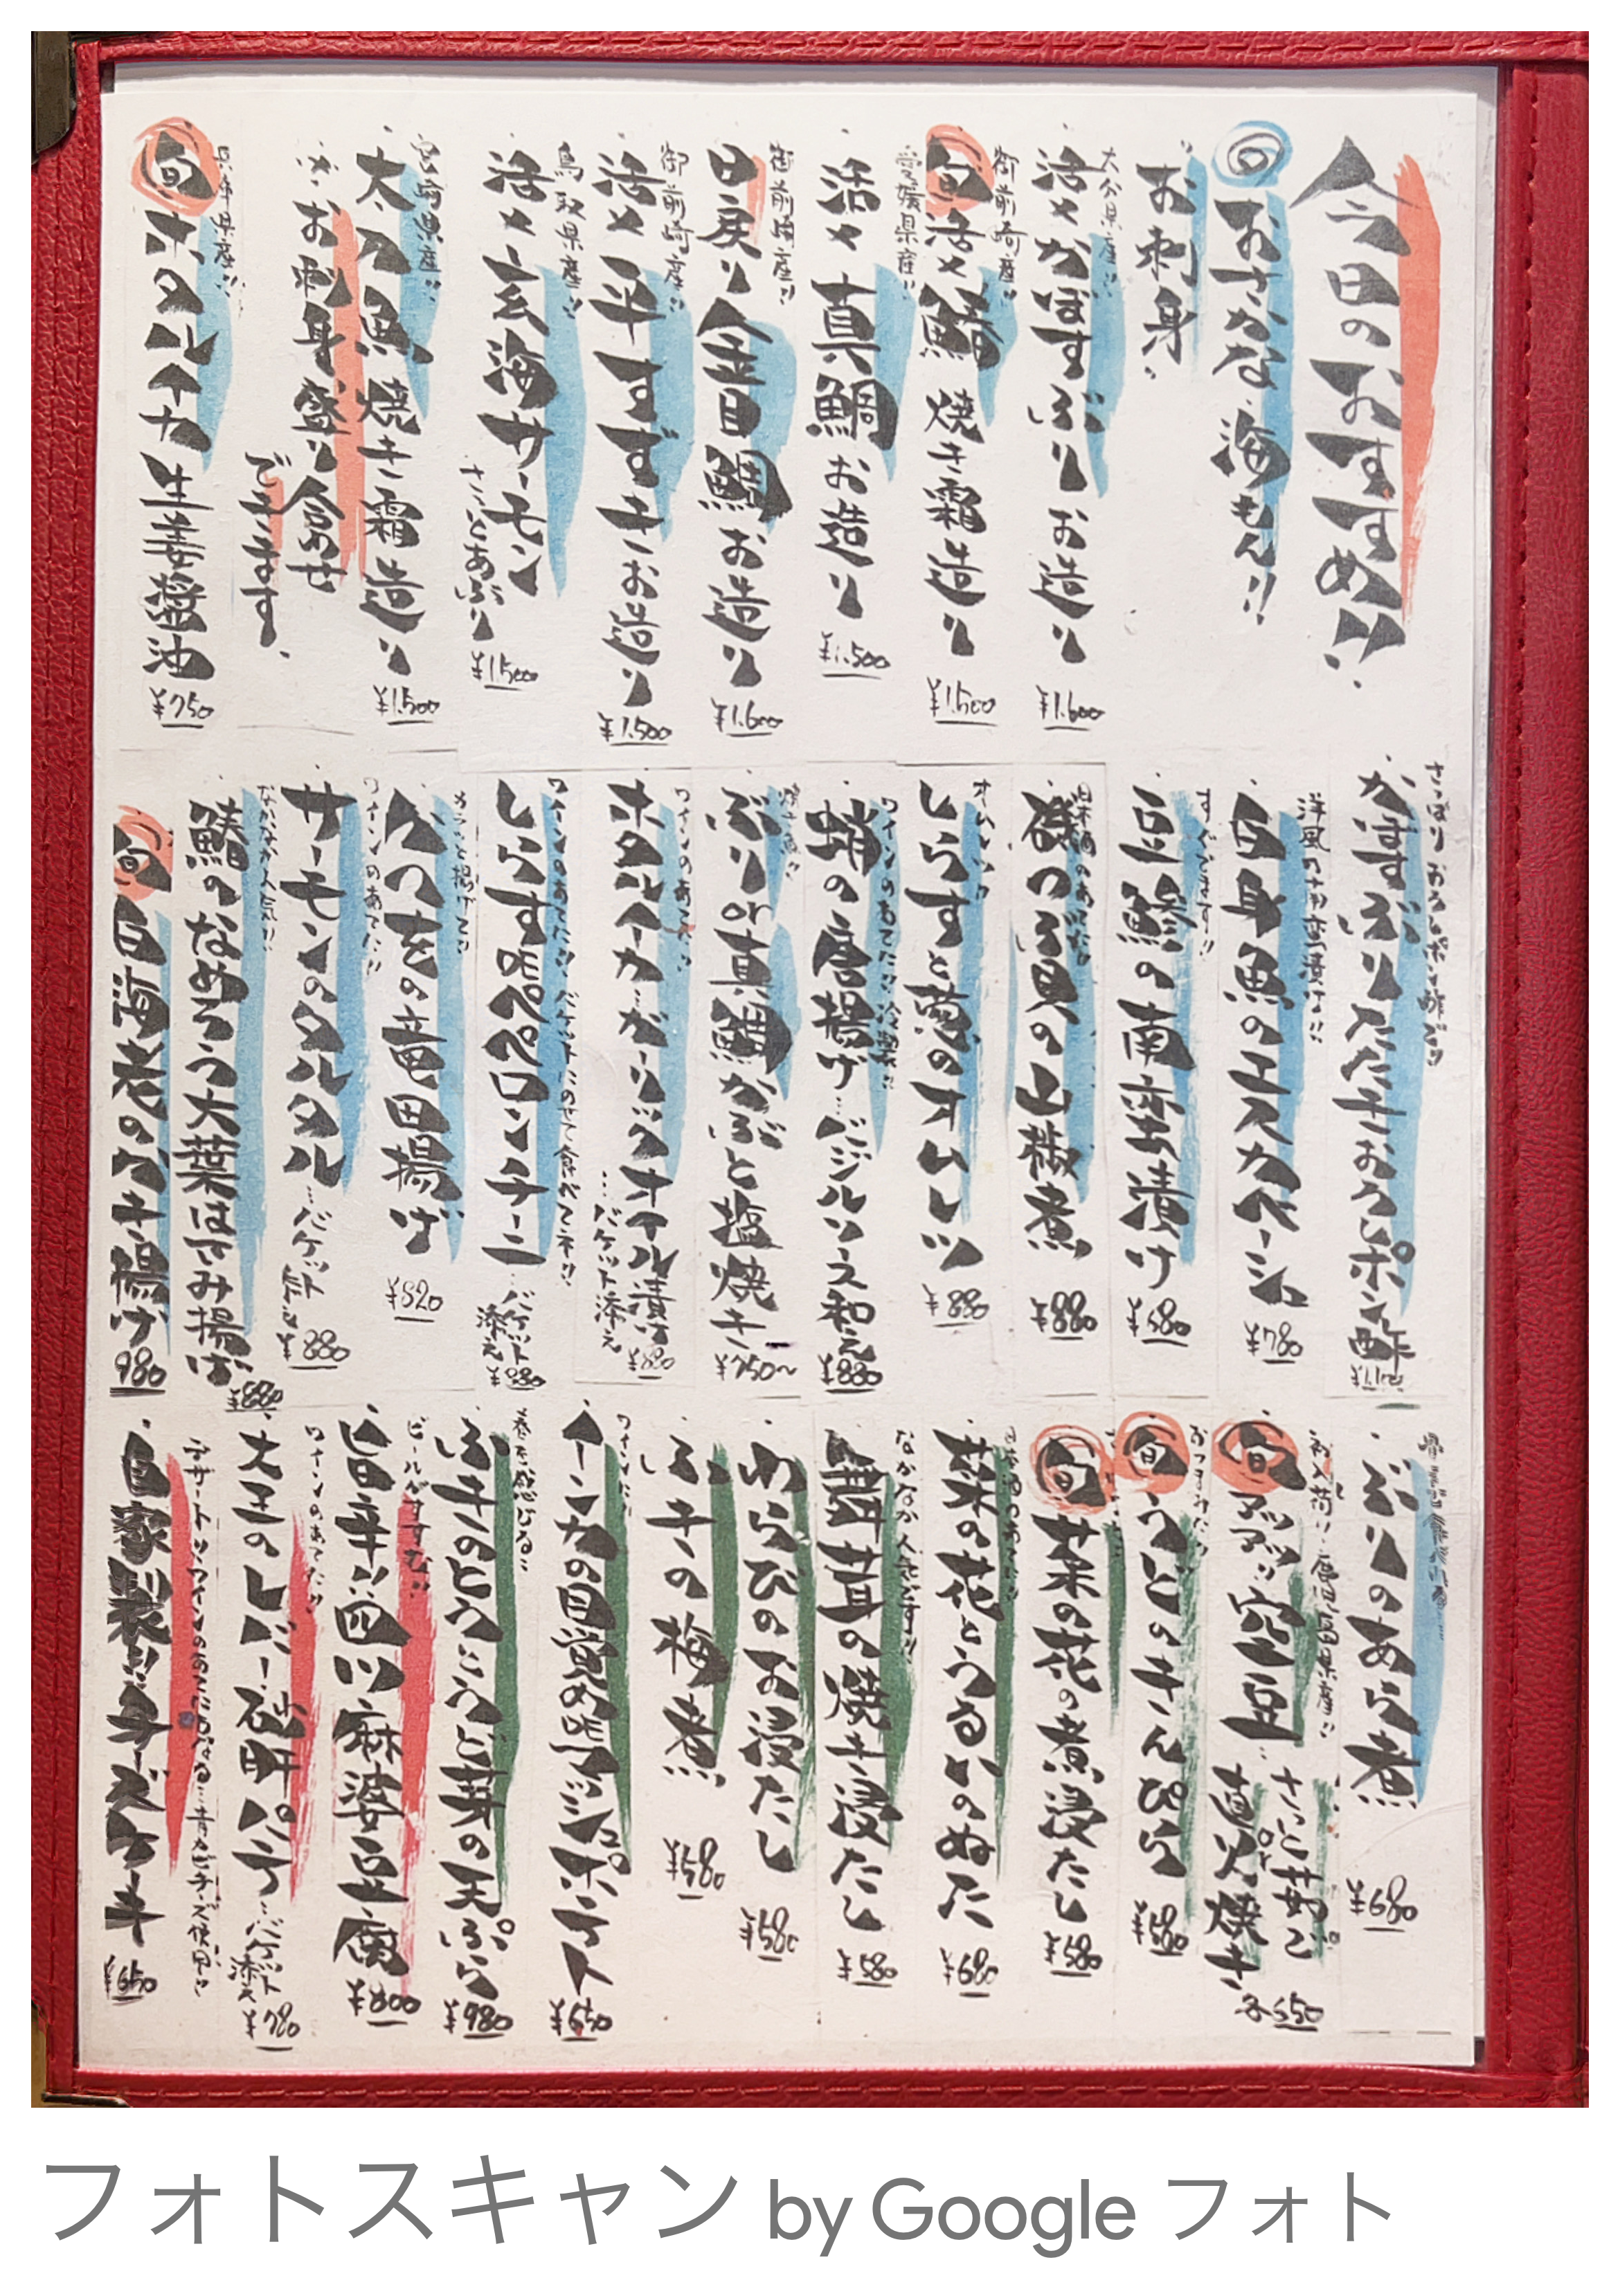 今日のおすすめ!!
◎おさかな、海もん!!
お刺身
大分県産!!
活〆かぼすぶり お造り
¥1.600
御前崎産!!
旬 活〆鰆 焼き霜造り
¥1.500
愛媛県産!!
活〆真鯛 お造り
¥1.500
御前崎産!!
日戻り金目鯛 お造り
¥1.600
御前崎産!!
活〆平すずき お造り
¥1.500
鳥取県産!!
活〆玄海サーモン
さっとあぶり
¥1.500
宮崎県産!!
太刀魚焼き霜造り
¥1.500
お刺身盛り合せ
できます。
兵庫県産!!
旬 ホタルイカ 生姜醤油
¥750
さっぱり おろしポン酢で!!
かますぶりたたきおろしポン酢
洋風の南蛮漬け!!
白身魚のエスカベーシュ
¥780
すぐできます!!
豆鯵の南蛮漬け
¥580
日本酒のあてに!!
磯つぶ貝の山椒煮
¥880
オムレツ!!
しらすと葱のオムレツ
¥880
ワインのあてに!!冷製!!
蛸の唐揚げ…バジルソース和え
¥880
焼き魚!!
ぶりor真鯛かぶと塩焼き
¥750〜
ワインのあてに!!
ホタルイカ…ガーリックオイル漬け
…バケット添え
¥880
ワインのあてに!! バケットにのせて食べてネ!!
しらすのペペロンチーニ
…バケット添え
¥880
カラッと揚げて!!
めひかりの竜田揚げ
¥820
ワインのあてに!!
サーモンのタルタル
…バケット添え
¥880
なかなか人気!!
鰆のなめろう大葉はさみ揚げ
¥880
旬 白海老のかき揚げ
980
ぶりのあら煮
¥680
初入荷!!鹿児島県産!!
旬 アツアツ!!空豆…さっと茹で
or
直火焼き
各550
おつまみに!!
旬 うどのきんぴら
¥580
旬 菜の花の煮浸たし
¥580
菜の花とうるいのぬた
¥680
なかなか人気です!!
舞茸の焼き浸たし
¥580
わらびのお浸たし
¥580
ふきの梅煮
¥580
ワインに!!
インカの目覚め
¥650
春を感じる!!
ふきのとうとうど芽の天ぷら
¥980
ビールがすすむ!!
旨辛!!四川麻婆豆腐
¥800
ワインのあてに!!
大王のレバー砂肝パテ
…バケット添え
¥780
デザート!!ワインのあてにもなる…青カビチーズ使用!!
自家製!!チーズケーキ
¥650
フォトスキャン by Google フォト